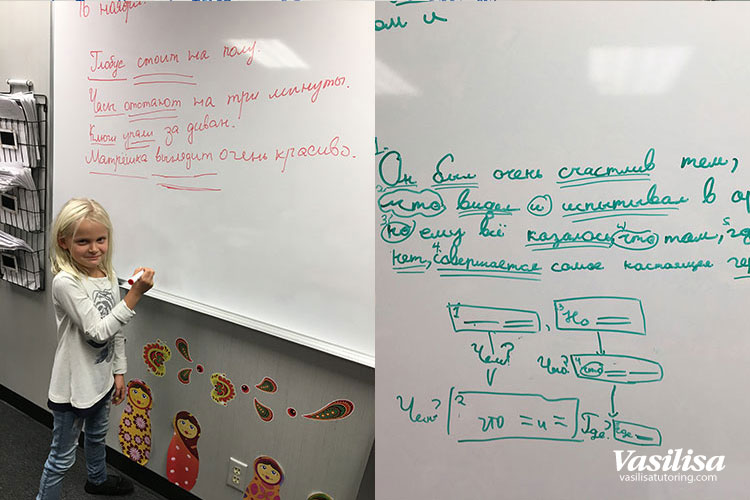 16 нояб
Глобус стоит на полу.
Часы отстают на три минуты.
Ключи упали за диван.
Матрёшка выглядит очень красиво.
ом и
1.
Он был очень счастлив тем,
2 что видел и испытывал в ор
3 но ему всё казалось, 4 что там, 5. гд
нет, 4. совершается самое настоящее гер
1 , 3 Но
Чем? Что? 4 что
Чем? 2 что = и = Где? 5 где
Vasilisa
vasilisatutoring.com